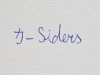 カ-Siders